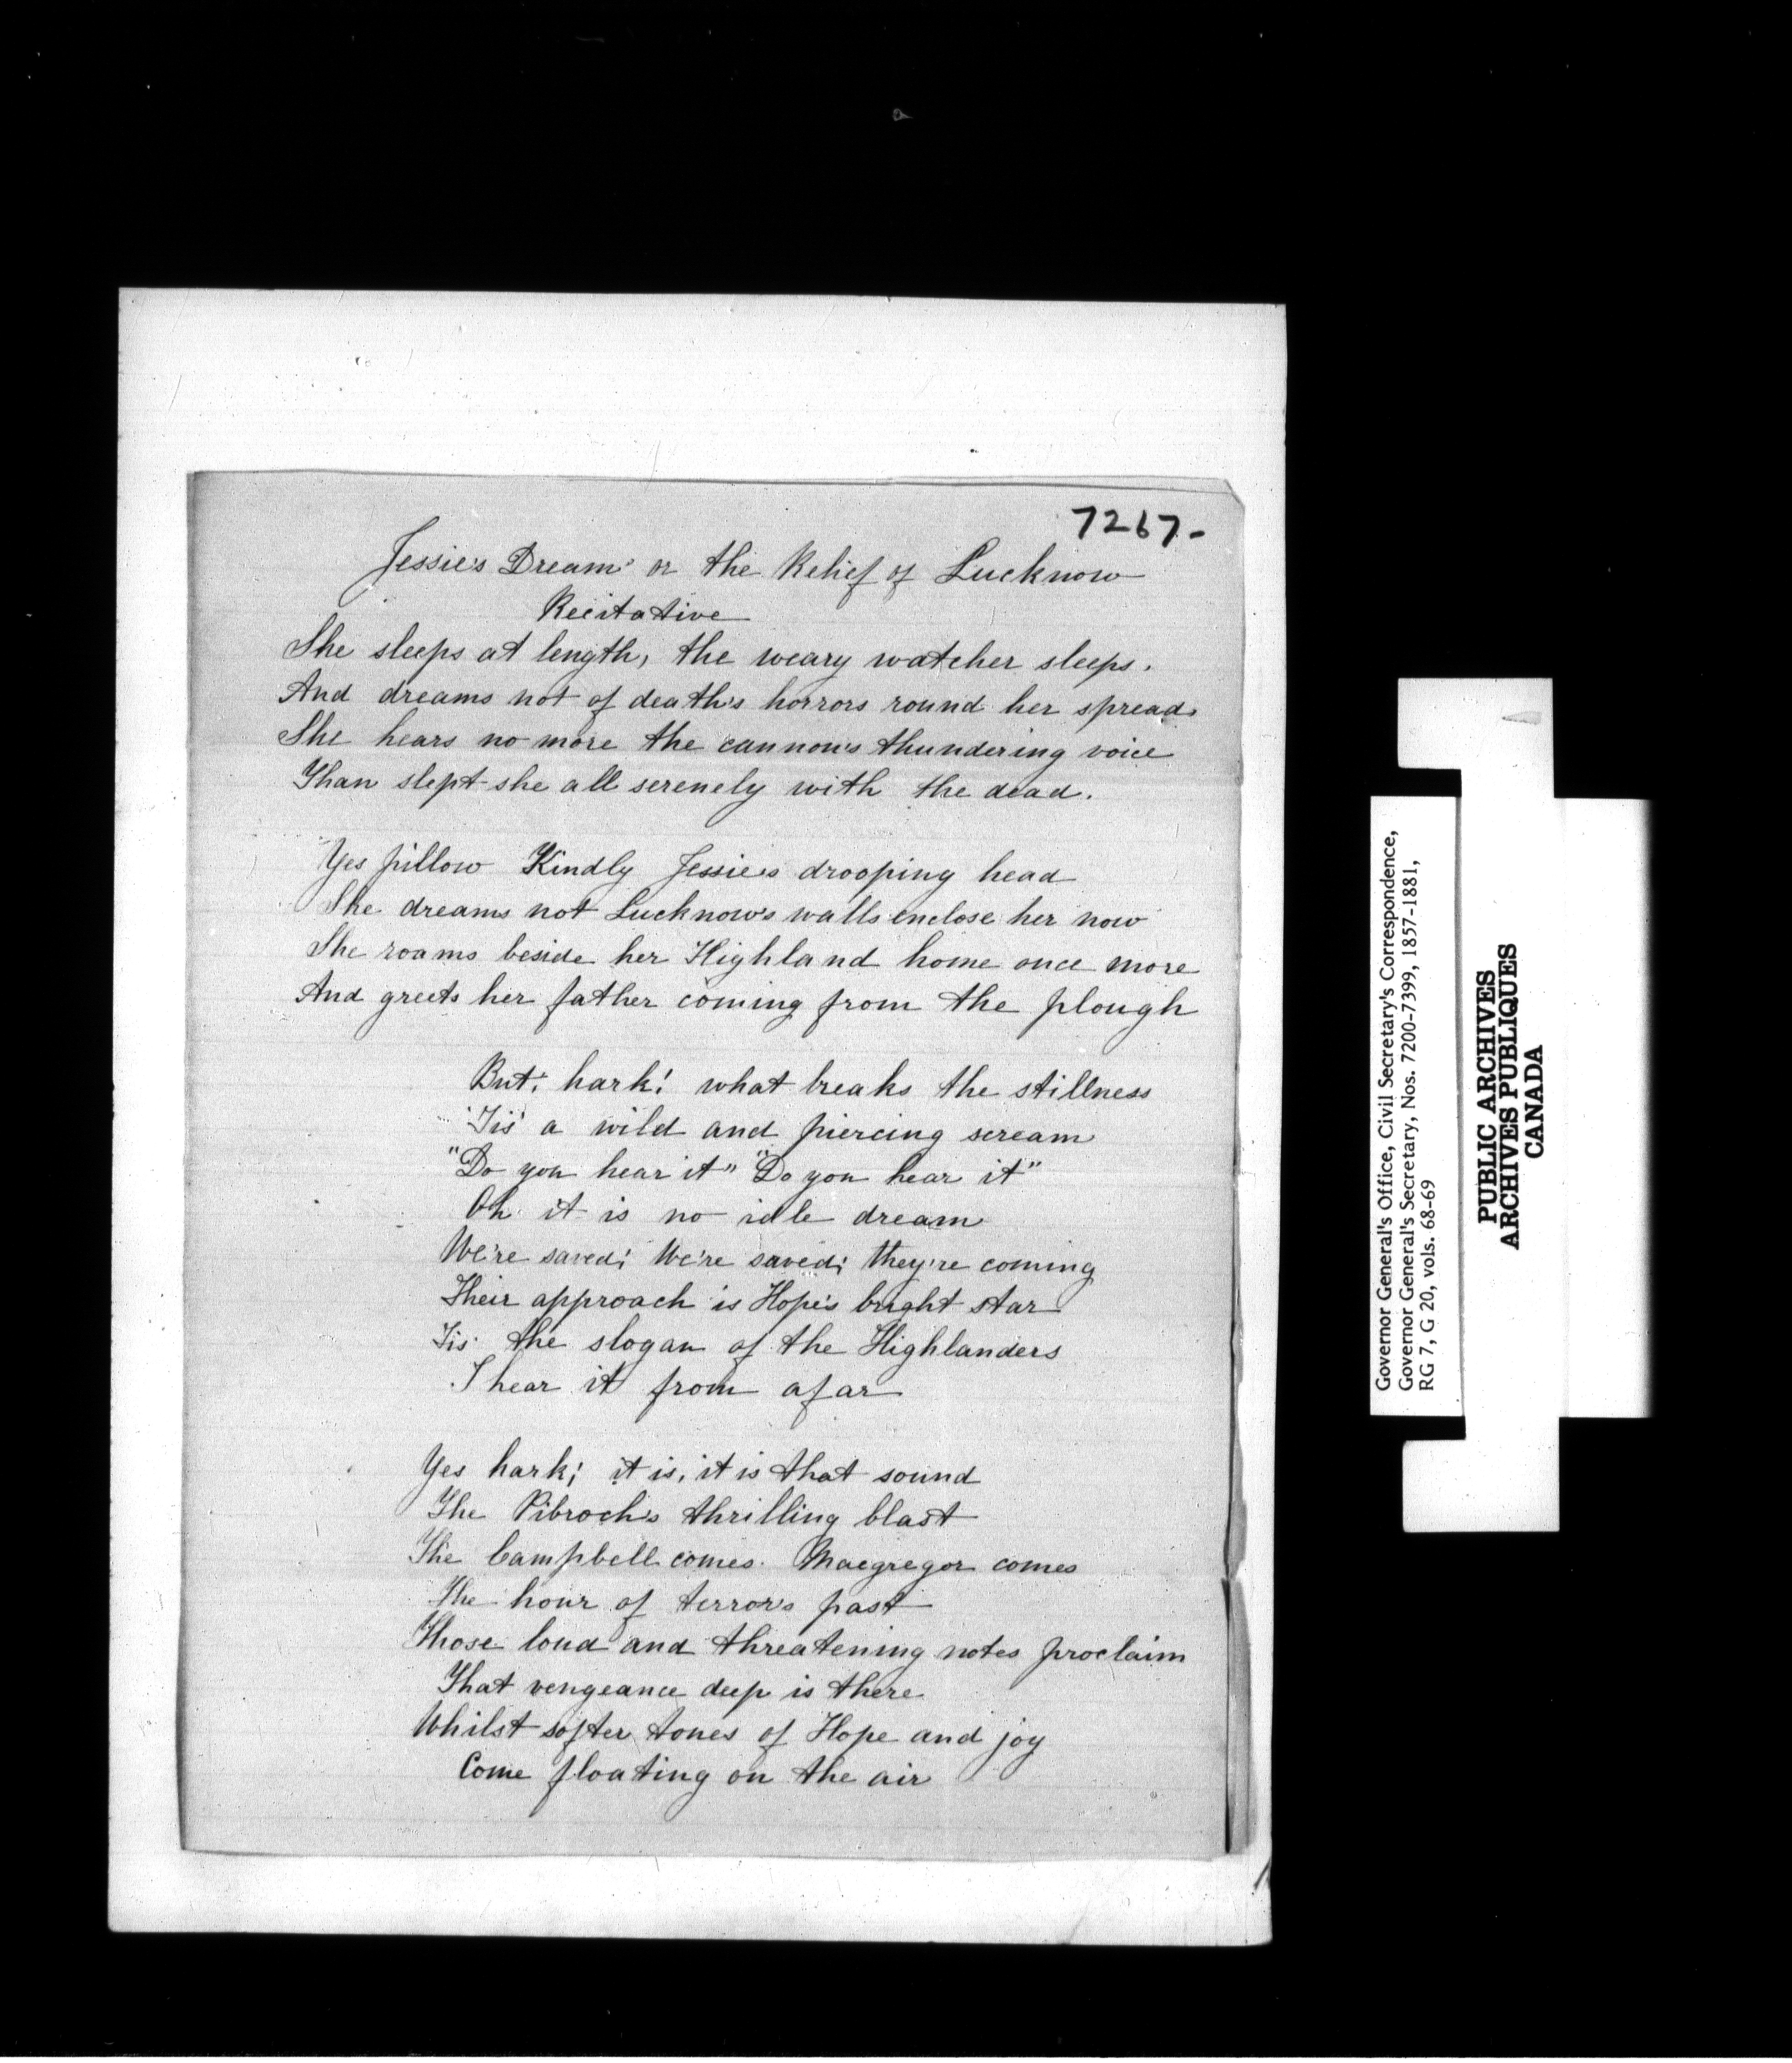 7267-
Jessie's Dream or the Relief of Lucknow
Recitative
She sleeps at length, the weary watcher sleeps.
And dreams not of death's horrors round her spread.
She hears no more the cannon's thundering voice
Than slept she all serenely with the dead.
Yes pillow Kindly Jessie's drooping head
She dreams not Lucknow's walls enclose her now
She roams beside her Highland home once more
And greets her father coming from the plough
But; hark! what breaks the stillness
'Tis a wild and piercing scream
"Do you hear it" "Do you hear it"
Oh it is no idle dream
We're saved; We're saved; they're coming
Their approach is Hope's bright star
Tis the slogan of the Highlanders
I hear it from afar
Yes hark; it is, it is that sound
The Pibroch's thrilling blast
The Campbell comes. Macgregor comes
The hour of terror's past
Those loud and threatening notes proclaim
That vengeance deep is there
Whilst softer tones of Hope and joy
Come floating on the air
Governor General's Office, Civil Secretary's Correspondence,
Governor General's Secretary, Nos. 7200-7399, 1857-1881,
RG 7, G 20, vols. 68-69
PUBLIC ARCHIVES
ARCHIVES PUBLIQUES
CANADA